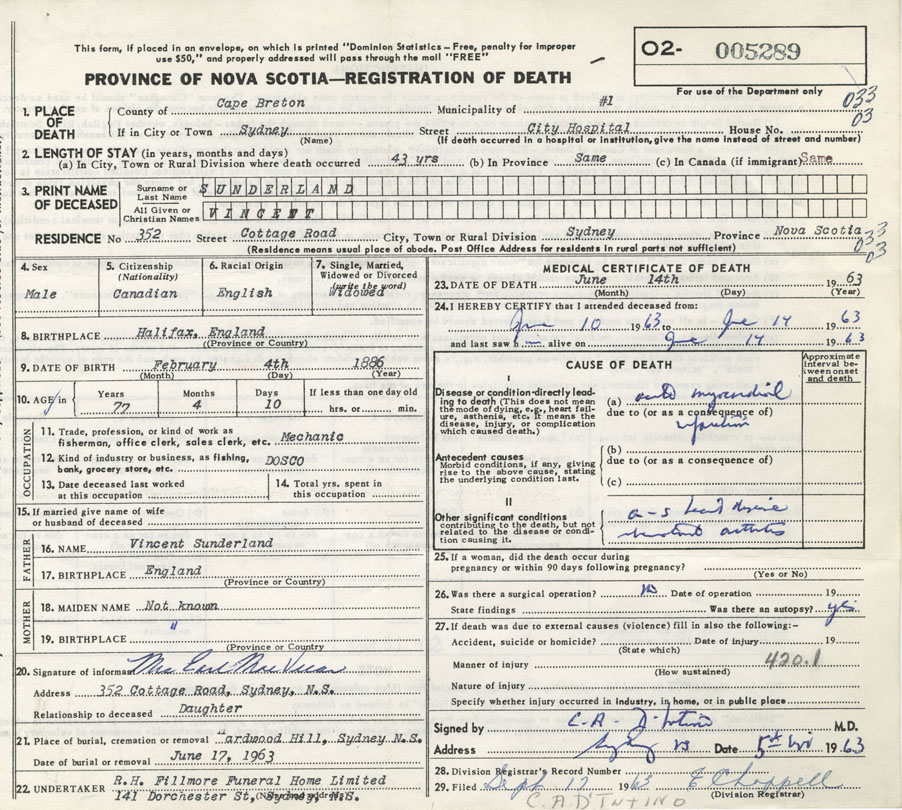 This form, if placed in an envelope, on which is printed "Dominion Statistics – Free, penalty for improper
use $50," and properly addressed will pass through the mail "FREE"
O2- 005289
PROVINCE OF NOVA SCOTIA—REGISTRATION OF DEATH
For use of the Department only
033
03
1. PLACE OF DEATH
County of Cape Breton Municipality of #1
If in City or Town Sydney Street City Hospital House No.
(Name) (If death occurred in a hospital or institution, give the name instead of street and number)
2. LENGTH OF STAY (in years, months and days)
(a) In City, Town or Rural Division where death occurred 43 yrs (b) In Province Same (c) In Canada (if immigrant) Same
3. PRINT NAME OF DECEASED
Surname or Last Name SUNDERLAND
All Given or Christian Names VINCENT
RESIDENCE No 352 Street Cottage Road City, Town or Rural Division Sydney Province Nova Scotia
033
03
(Residence means usual place of abode. Post Office Address for residents in rural parts not sufficient)
4. Sex
Male
5. Citizenship
(Nationality)
Canadian
6. Racial Origin
English
7. Single, Married,
Widowed or Divorced
(write the word)
Widowed
8. BIRTHPLACE Halifax, England
(Province or Country)
9. DATE OF BIRTH February 4th 1886
(Month) (Day) (Year)
10. AGE in
Years Months Days If less than one day old
77 4 10 hrs. or min.
OCCUPATION
11. Trade, profession, or kind of work as
fisherman, office clerk, sales clerk, etc. Mechanic
12. Kind of industry or business, as fishing,
bank, grocery store, etc. DOSCO
13. Date deceased last worked
at this occupation
14. Total yrs. spent in
this occupation
15. If married give name of wife
or husband of deceased
FATHER
16. NAME Vincent Sunderland
17. BIRTHPLACE England
(Province or Country)
MOTHER
18. MAIDEN NAME Not known
19. BIRTHPLACE "
(Province or Country)
20. Signature of informant Mrs Earl
Address 352 Cottage Road, Sydney, N.S.
Relationship to deceased Daughter
21. Place of burial, cremation or removal ardwood Hill, Sydney N.S.
Date of burial or removal June 17, 1963
22. UNDERTAKER R.H. Fillmore Funeral Home Limited
141 Dorchester St, Sydney, N.S.
MEDICAL CERTIFICATE OF DEATH
23. DATE OF DEATH June 14th 1963
(Month) (Day) (Year)
24. I HEREBY CERTIFY that I attended deceased from:
10 1963 to 14 1963
and last saw him alive on 14 1963
CAUSE OF DEATH
Approximate
interval be-
tween onset
and death
I
Disease or condition directly lead-
ing to death (This does not mean
the mode of dying, e.g., heart fail-
ure, asthenia, etc. It means the
disease, injury, or complication
which caused death.)
(a) myocardial
due to (or as a consequence of)
Antecedent causes
Morbid conditions, if any, giving
rise to the above cause, stating
the underlying condition last.
(b)
due to (or as a consequence of)
(c)
II
Other significant conditions
contributing to the death, but not
related to the disease or condi-
tion causing it.
a-s heart disease
arthritis
25. If a woman, did the death occur during
pregnancy or within 90 days following pregnancy?
(Yes or No)
26. Was there a surgical operation? no Date of operation 19
State findings Was there an autopsy? yes
27. If death was due to external causes (violence) fill in also the following:–
Accident, suicide or homicide? Date of injury 19
(State which)
Manner of injury 420.1
(How sustained)
Nature of injury
Specify whether injury occurred in industry, in home, or in public place
Signed by C-A-D-Intino M.D.
Address Sydney NS Date 1963
28. Division Registrar's Record Number
29. Filed Sept 17 1963 E Chappell
(Division Registrar)
C.A D'INTINO